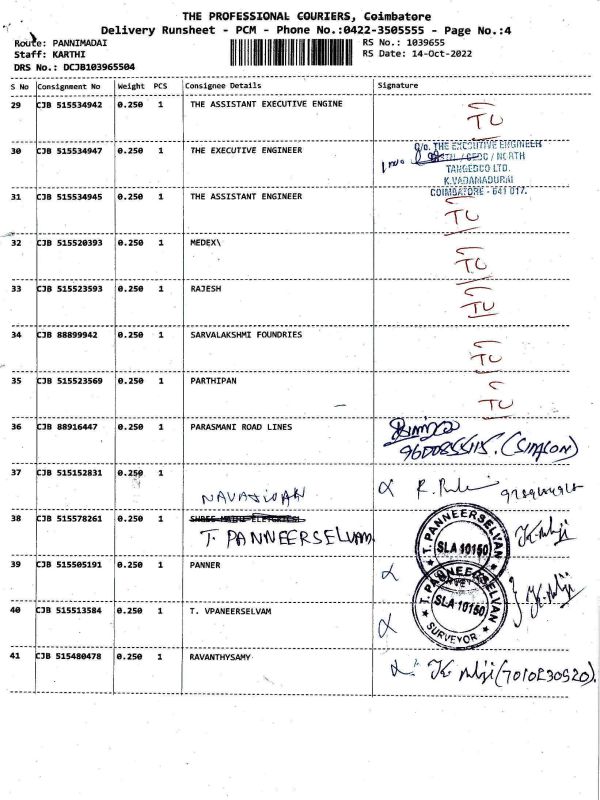 THE PROFESSIONAL COURIERS, Coimbatore
Delivery Runsheet - PCM - Phone No.:0422-3505555 - Page No.:4
Route: PANNIMADAI
Staff: KARTHI
DRS No.: DCJB103965504
RS No.: 1039655
RS Date: 14-Oct-2022
S No Consignment No Weight PCS Consignee Details Signature
29 CJB 515534942 0.250 1 THE ASSISTANT EXECUTIVE ENGINE TU
30 CJB 515534947 0.250 1 THE EXECUTIVE ENGINEER
O/o. THE EXECUTIVE ENGINEER
/ CEDC / NORTH
TANGEDCO LTD.
K.VADAMADURAI
COIMBATORE - 641 017.
31 CJB 515534945 0.250 1 THE ASSISTANT ENGINEER TU
32 CJB 515520393 0.250 1 MEDEX\ TU
33 CJB 515523593 0.250 1 RAJESH TU
34 CJB 88899942 0.250 1 SARVALAKSHMI FOUNDRIES TU
35 CJB 515523569 0.250 1 PARTHIPAN TU
36 CJB 88916447 0.250 1 PARASMANI ROAD LINES
9600855115. (SIMSON)
37 CJB 515152831 0.250 1
NAVAJIVAN
38 CJB 515578261 0.250 1
T. PANNEERSELVAM
T. PANNEERSELVAN
SLA 10150
39 CJB 515505191 0.250 1 PANNER
T. PANNEERSELVAN
SLA-10150
SURVEYOR
40 CJB 515513584 0.250 1 T. VPANEERSELVAM
41 CJB 515480478 0.250 1 RAVANTHYSAMY (7010230520).